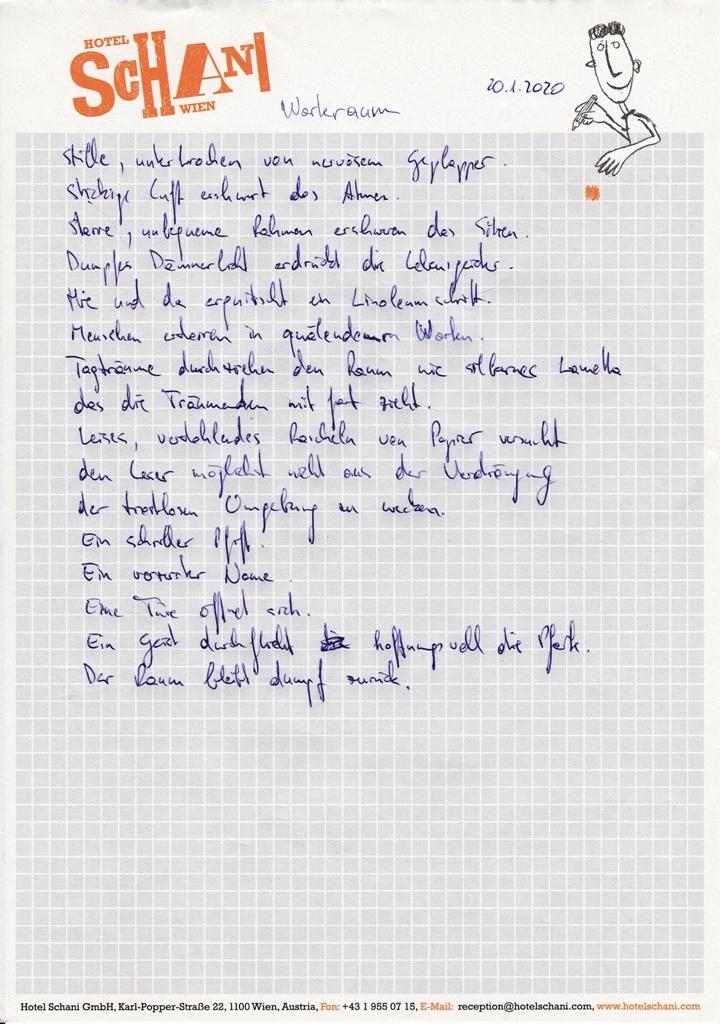 HOTEL
SCHANI
WIEN
Warteraum
20.1.2020
Stille, unterbrochen von nervösem Geplapper.
Stickige Luft erschwert das Atmen.
Starre, unbequeme Rahmen erschweren das Sitzen.
Dumpfes Dämmerlicht erdrückt die Lebensgeister.
Hie und da erquitscht ein Linoleumschritt.
Menschen erstarren in quälendem Warten.
Tagträume durchziehen den Raum wie silbernes Lametta
das die Träumenden mit fort zieht.
Leises, verstohlendes Rascheln von Papier versucht
den Leser möglichst nicht aus der Verdrängung
der trostlosen Umgebung zu wecken.
Ein schriller Pfiff.
Ein verzerrter Name.
Eine Türe öffnet sich.
Ein Geist durchflieht hoffnungsvoll die Pforte.
Der Raum bleibt dumpf zurück.
Hotel Schani GmbH, Karl-Popper-Straße 22, 1100 Wien, Austria, Fon: +43 1 955 07 15, E-Mail: reception@hotelschani.com, www.hotelschani.com